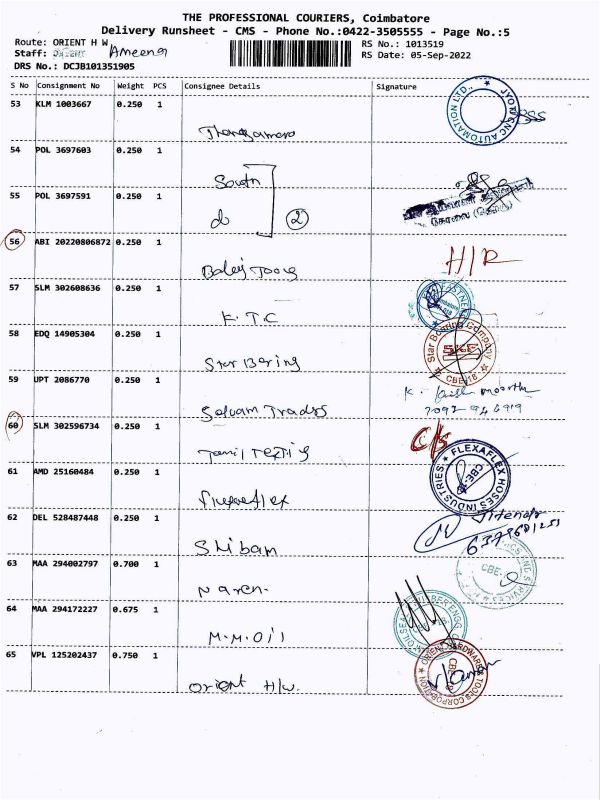 THE PROFESSIONAL COURIERS, Coimbatore
Delivery Runsheet - CMS - Phone No.:0422-3505555 - Page No.:5
Route: ORIENT H W
RS No.: 1013519
Staff: Ameena
RS Date: 05-Sep-2022
DRS No.: DCJB101351905
S No Consignment No Weight PCS Consignee Details Signature
53 KLM 1003667 0.250 1
JYOTI CNC AUTOMATION LTD.,
54 POL 3697603 0.250 1
South
55 POL 3697591 0.250 1
do 2
56 ABI 20220806872 0.250 1
H/R
57 SLM 302608636 0.250 1
K.T.C
58 EDQ 14905304 0.250 1
Star Bering
Star Bearing Company
CBE-18
59 UPT 2086770 0.250 1
Selvam Traders
60 SLM 302596734 0.250 1
C/S
61 AMD 25160484 0.250 1
FLEXAFLEX HOSES INDUSTRIES
CBE
62 DEL 528487448 0.250 1
Shibam
Jitendr
6379601251
63 MAA 294002797 0.700 1
Naren.
CBE
64 MAA 294172227 0.675 1
M.M.Oil
65 VPL 125202437 0.750 1
Orient H/w.
ORIENT HARDWARE & TOOLS CORPORATION